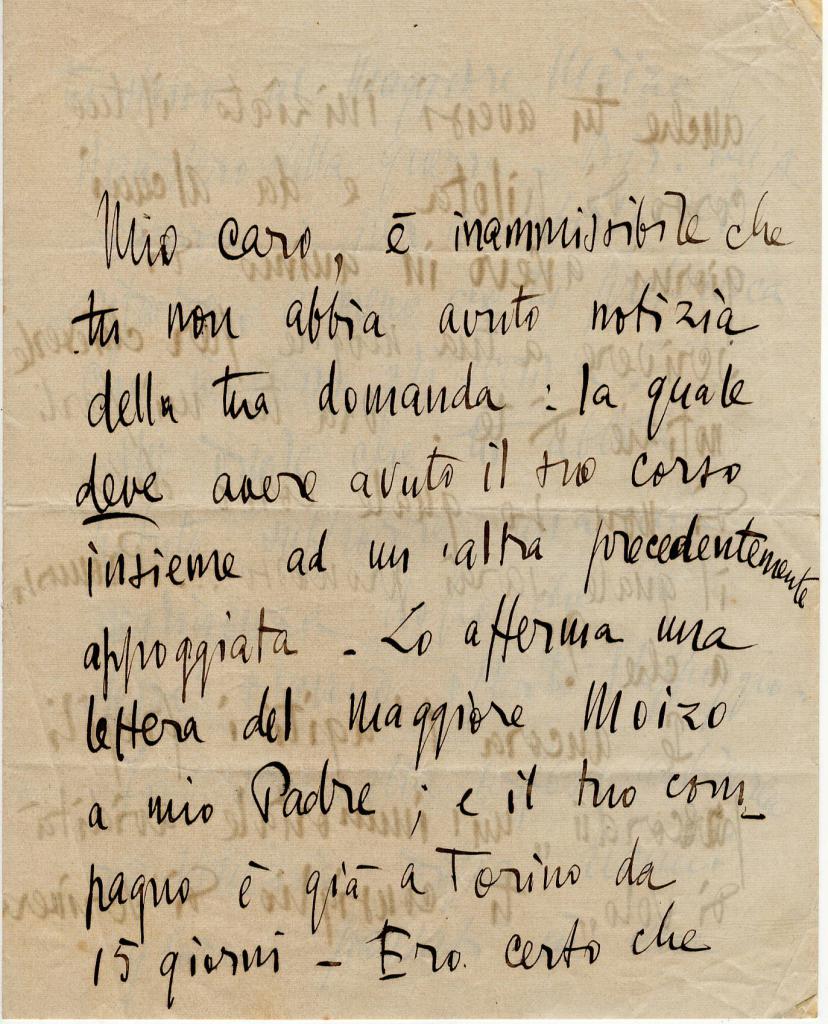 Mio caro, è inammissibile che
tu non abbia avuto notizia
della tua domanda : la quale
deve avere avuto il suo corso
insieme ad un'altra precedentemente
appoggiata - Lo afferma una
lettera del Maggiore Moizo
a mio Padre ; e il tuo com_
pagno è già a Torino da
15 giorni - Ero certo che